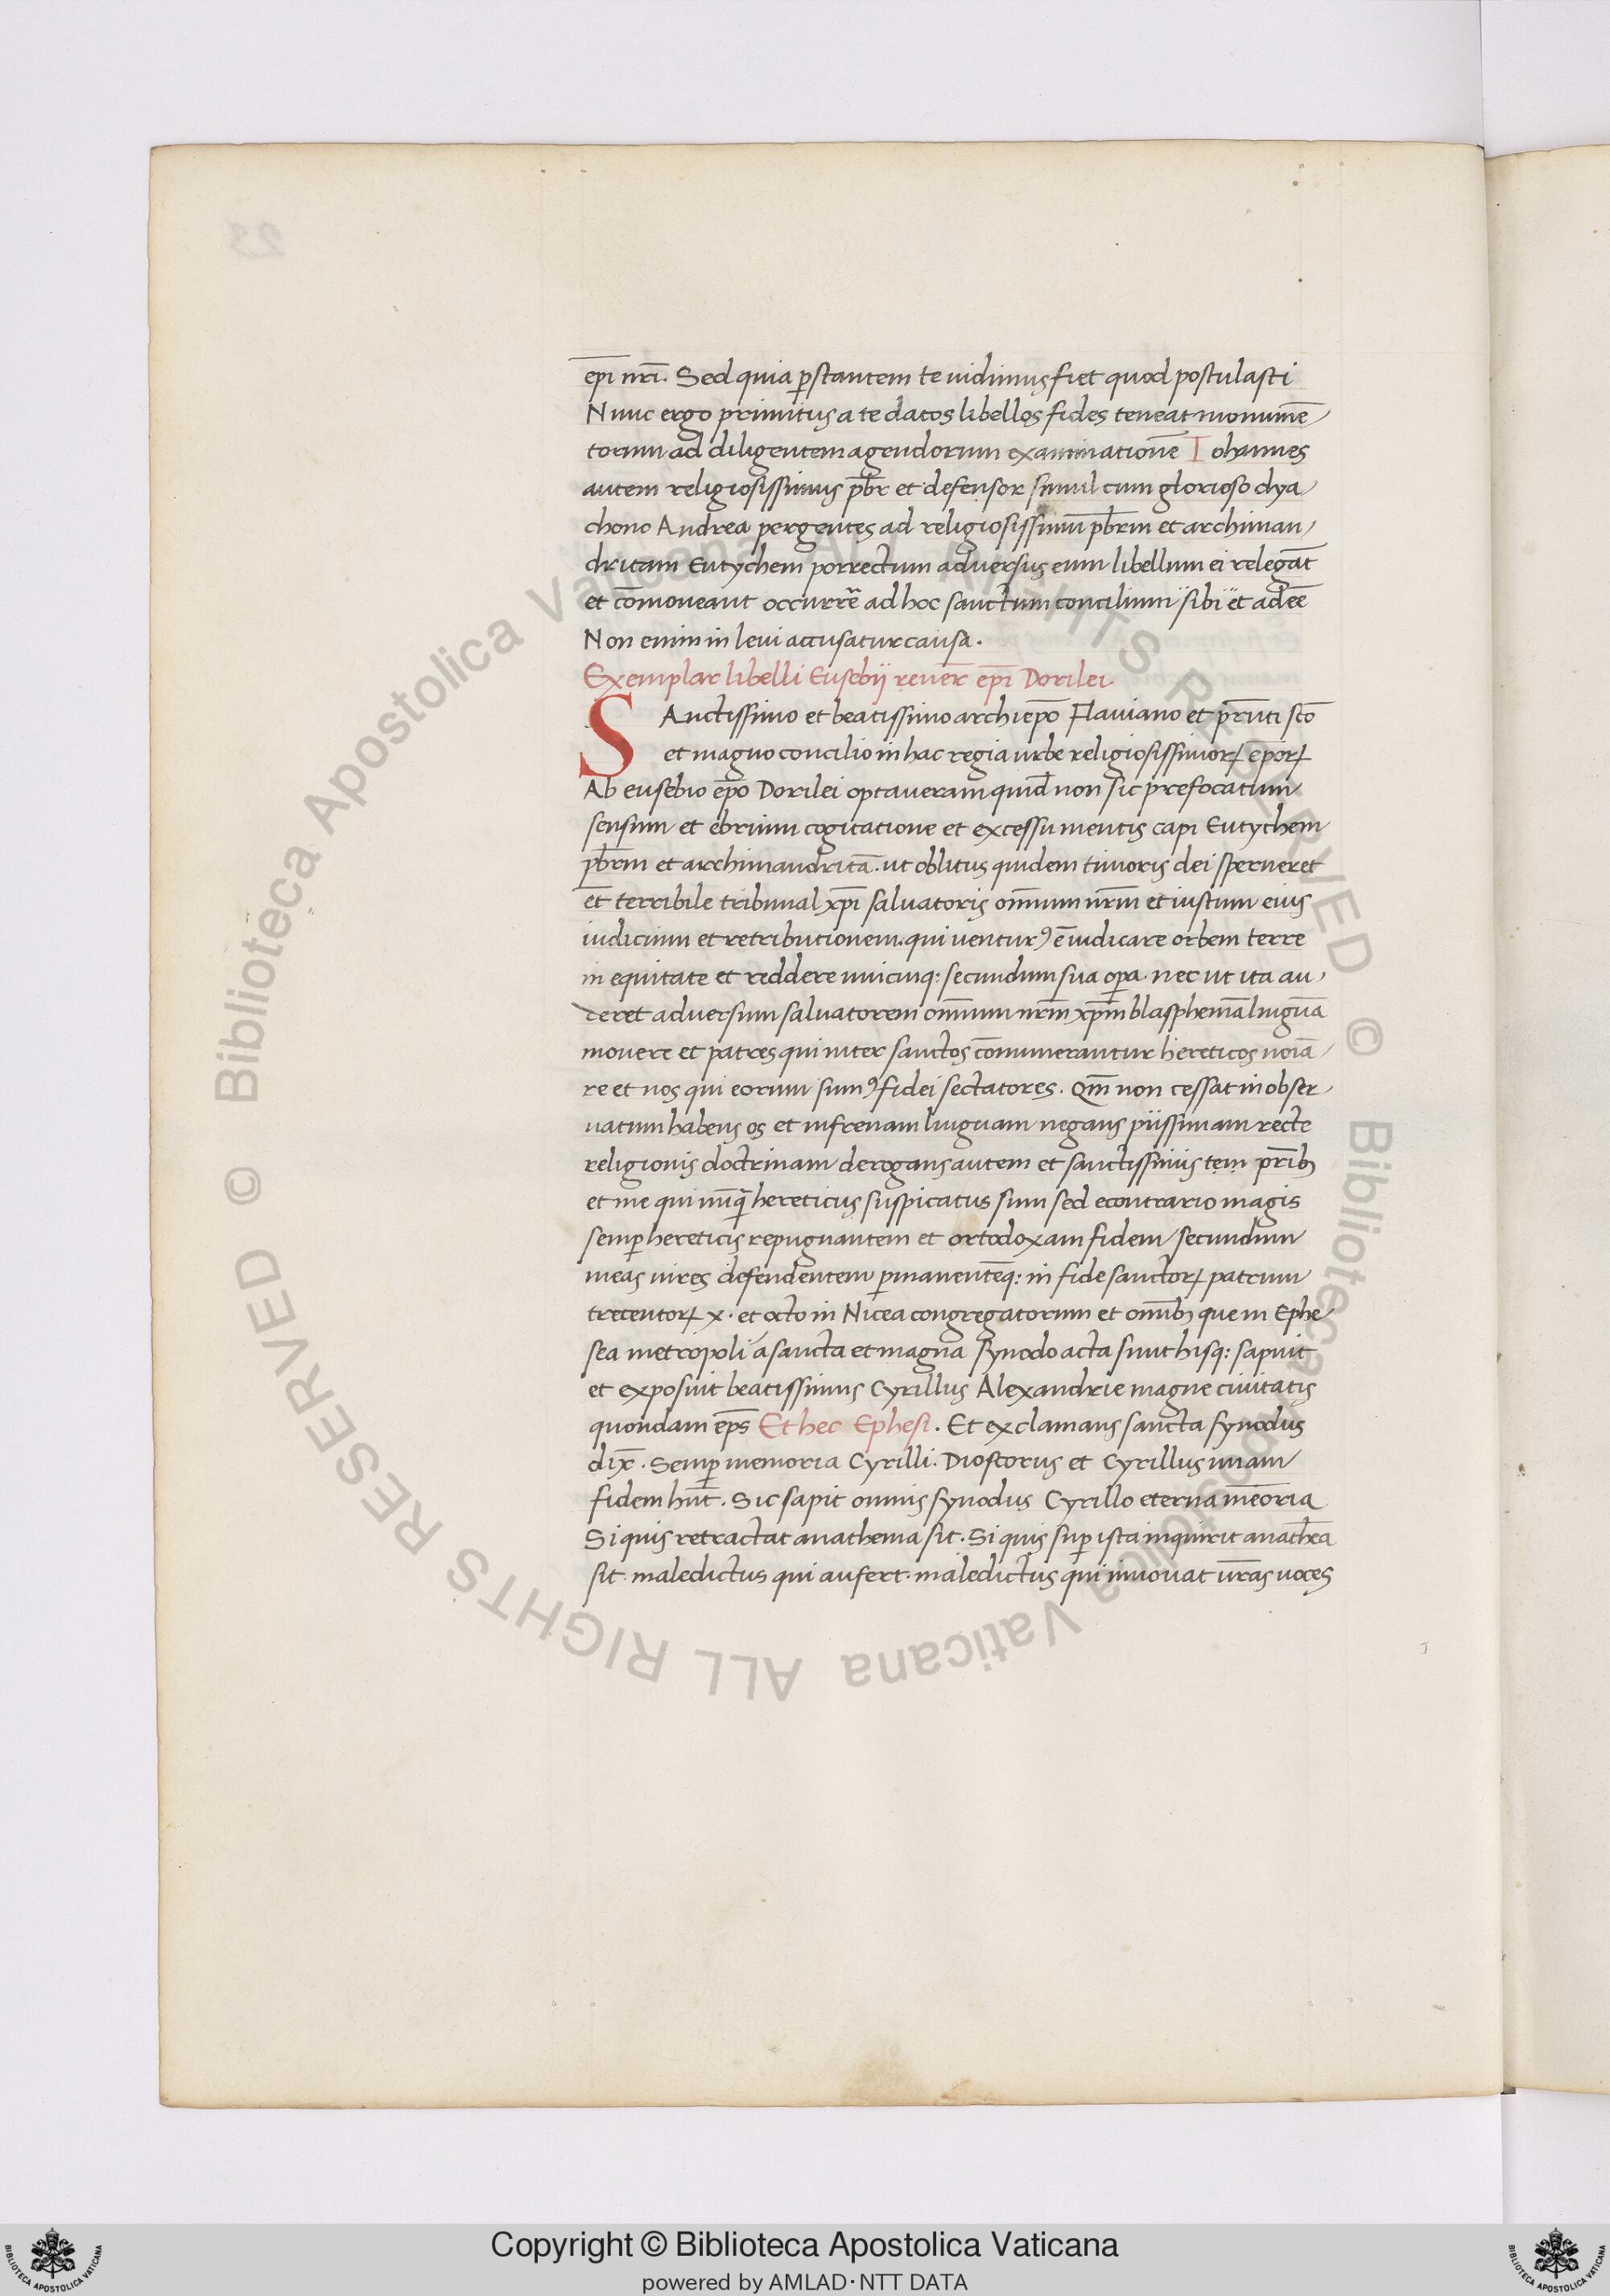 23
ep̅i nr̅i. Sed quia ꝑstantem te uidimus fiet quod postulasti
Nunc ergo primitus a te datos libellos fides teneat monume̅
torum ad diligentem agendorum examinatione̅ Iohannes
autem religiosissimus pb̅r et defensor simul cum glorioso dya
chono Andrea pergentes ad religiosissimu̅ pb̅rm et archiman
dritam Eutychem porrectum adversus eum libellum ei relega̅t
et co̅moveant occurre̅ ad hoc sanctum concilium sibi et ade̅e̅
Non enim in levi accusatur causa.
Exemplar libelli Eusebij reuer̅ ep̅i Dorilei
SAnctissimo et beatissimo archiep̅o Flaviano et pr̅nti sc̅o
et magno concilio in hac regia urbe religiosissimoꝝ ep̅oꝝ
Ab eusebio ep̅o Dorilei optaveram quid̅ non sic prefocatum
sensum et ebrium cogitatione et excessu mentis capi Eutychem
pb̅rm et archimandrita̅. ut oblitus quidem timoris dei sperneret
et̅ terribile tribunal xp̅i salvatoris om̅ium nr̅m et iustum eius
iudicium et retributionem. qui venturꝰ e̅ iudicare orbem terre
in equitate et reddere unicuiq: secundum sua oꝑa. nec ut ita au
deret adversum salvatorem om̅ium nr̅m xp̅m blasphema̅ lingua̅
movere et patres qui inter sanctos co̅numerantur hereticos no̅ia̅
re et nos qui eorum sumꝰ fidei sectatores. Qm̅ non cessat inobser
uatum habens os et infrenam linguam negans piissimam recte
religionis doctrinam derogans autem et sanctissimis tem pr̅ibꝫ
et me qui nu̅q̅ hereticus suspicatus sum sed econtrario magis
semꝑ hereticis repugnantem et ortodoxam fidem secundum
meas vires defendentem ꝑmanente̅q: in fide sanctoꝝ patrum
trecentoꝝ x. et octo in Nicea congregatorum et om̅ibꝫ que in Ephe
sea metropoli a sancta et magna synodo acta sunt hisq: sapuit
et exposuit beatissimus Cyrillus Alexandrie magne civitatis
quondam ep̅s Et hec Ephesi. Et exclamans sancta synodus
dix̅. Semꝑ memoria Cyrilli. Dioscorus et Cyrillus unam
fidem hn̅t. Sic sapit omnis synodus Cyrillo eterna me̅oria
Si quis retractat anathema sit. Si quis suꝑ ista inquirit anath̅ea
sit. maledictus qui aufert. maledictus qui innovat ur̅as voces
© Biblioteca Apostolica Vaticana ALL RIGHTS RESERVED © Biblioteca Apostolica Vaticana ALL RIGHTS RESERVED
Copyright © Biblioteca Apostolica Vaticana
powered by AMLAD·NTT DATA
BIBLIOTECA APOSTOLICA VATICANA
BIBLIOTECA APOSTOLICA VATICANA